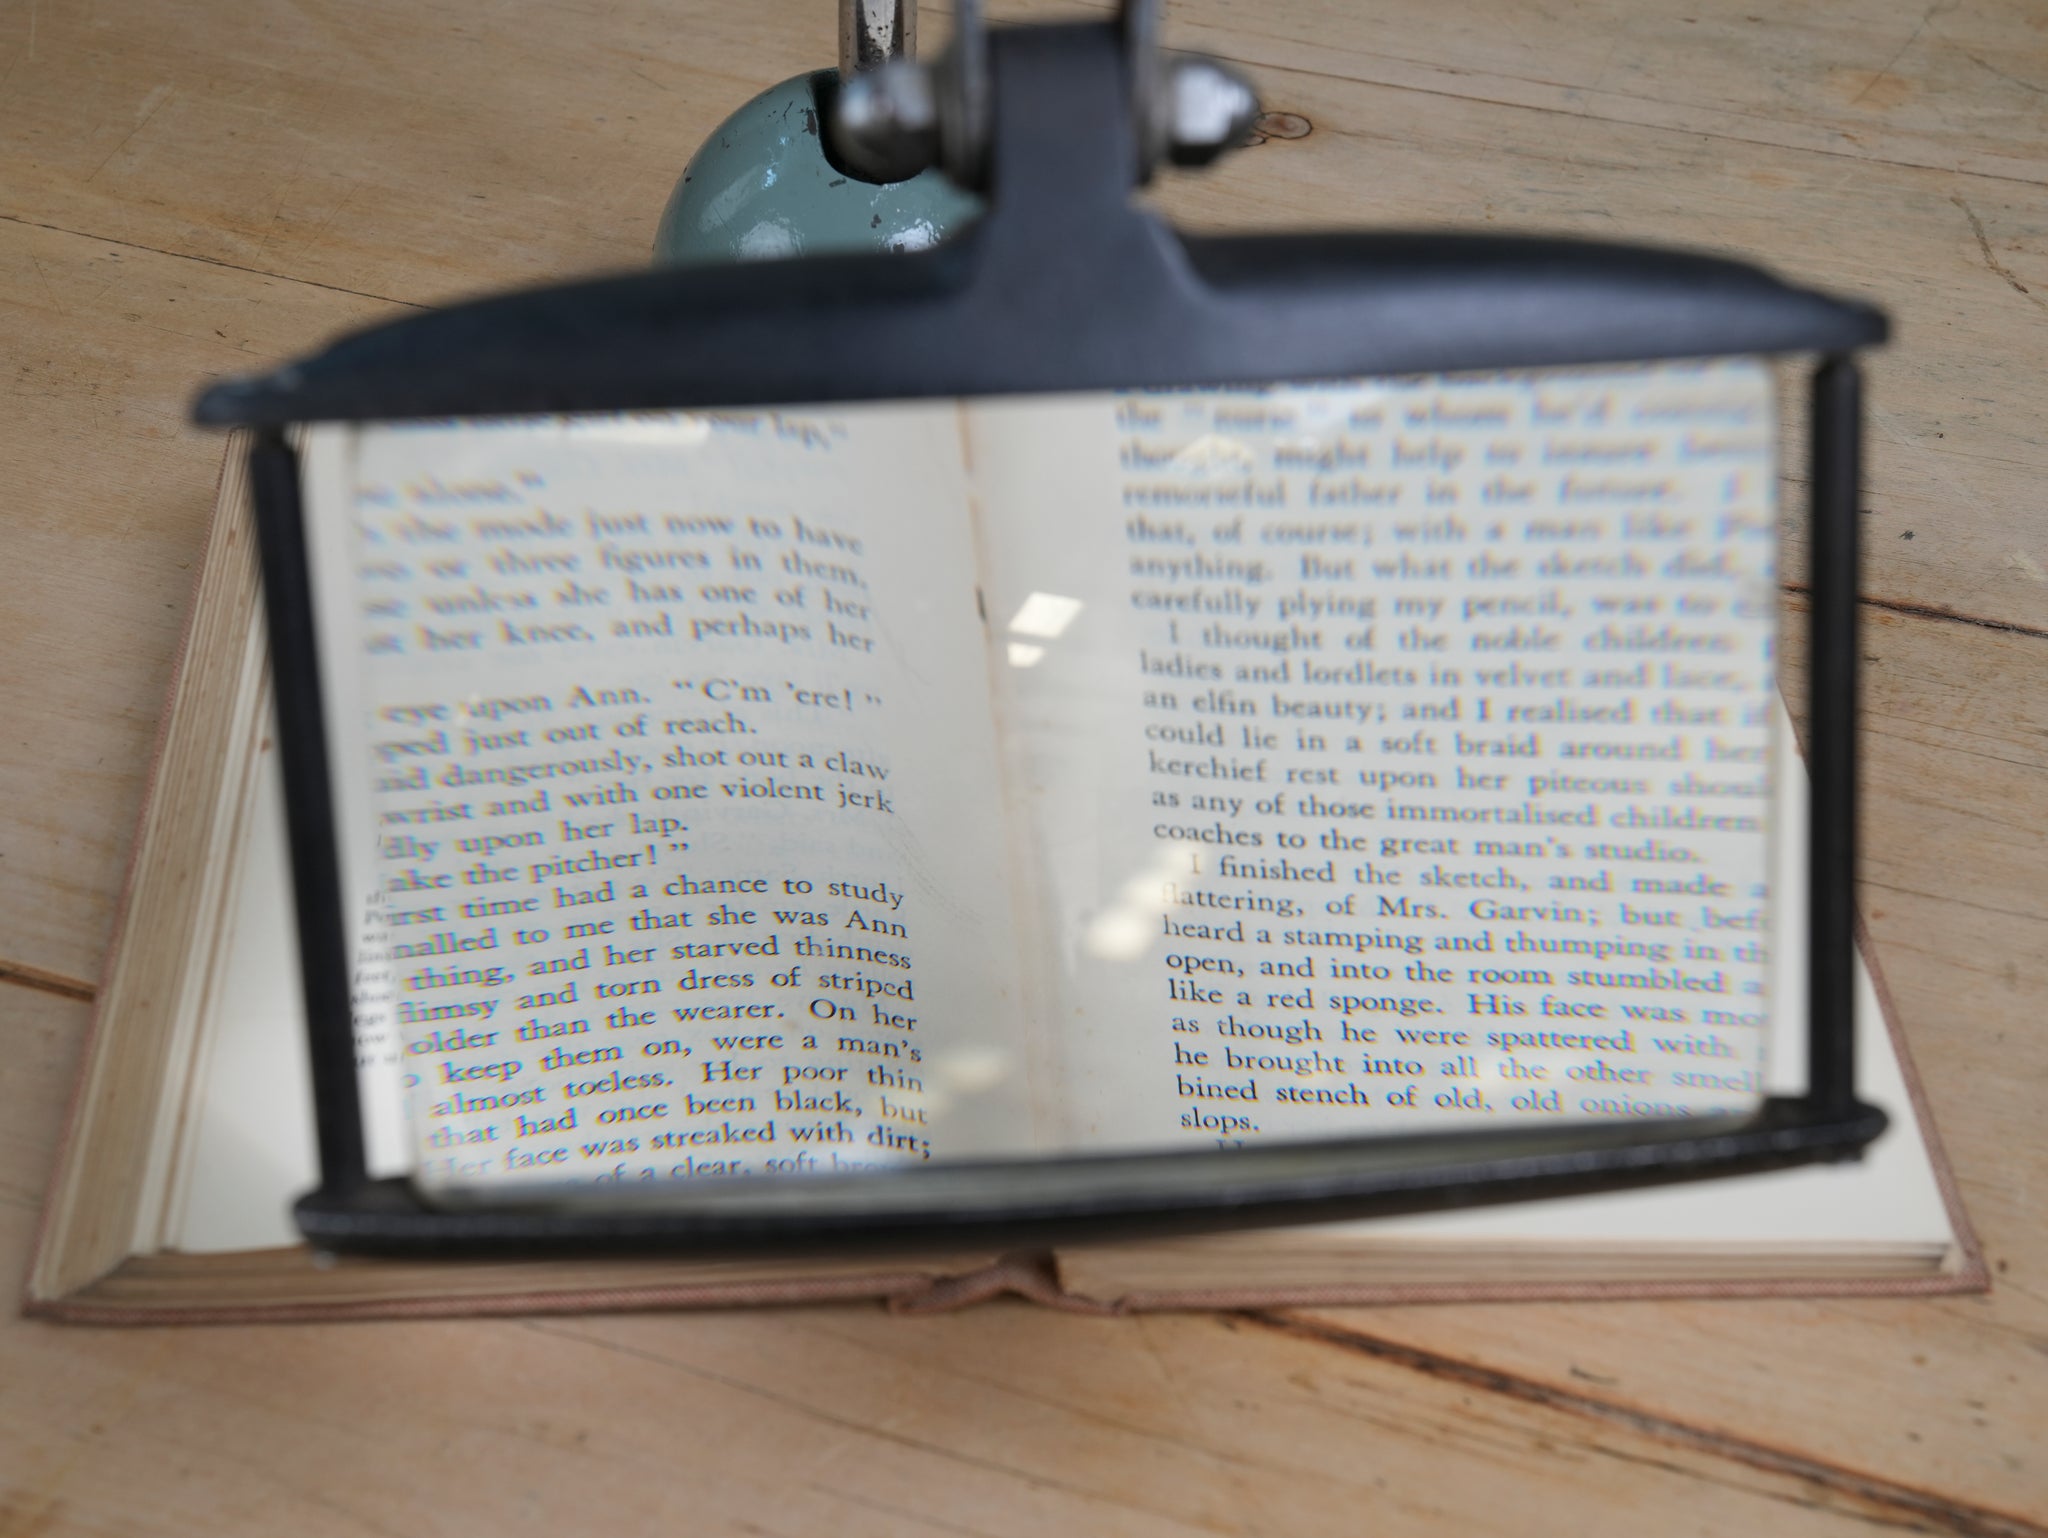 your lap,"
alone."
the mode just now to have
or three figures in them,
unless she has one of her
her knee, and perhaps her
eye upon Ann. "C'm 'ere!"
ped just out of reach.
and dangerously, shot out a claw
wrist and with one violent jerk
dly upon her lap.
ake the pitcher!"
irst time had a chance to study
nalled to me that she was Ann
thing, and her starved thinness
flimsy and torn dress of striped
older than the wearer. On her
o keep them on, were a man's
almost toeless. Her poor thin
that had once been black, but
Her face was streaked with dirt;
of a clear, soft
the "nurse" to whom he'd
thought, might help to insure
remorseful father in the future. I
that, of course; with a man like
anything. But what the sketch did,
carefully plying my pencil, was to
I thought of the noble children
ladies and lordlets in velvet and lace,
an elfin beauty; and I realised that if
could lie in a soft braid around her
kerchief rest upon her piteous shoul
as any of those immortalised children
coaches to the great man's studio.
I finished the sketch, and made a
flattering, of Mrs. Garvin; but bef
heard a stamping and thumping in th
open, and into the room stumbled a
like a red sponge. His face was mo
as though he were spattered with
he brought into all the other smell
bined stench of old, old onions
slops.